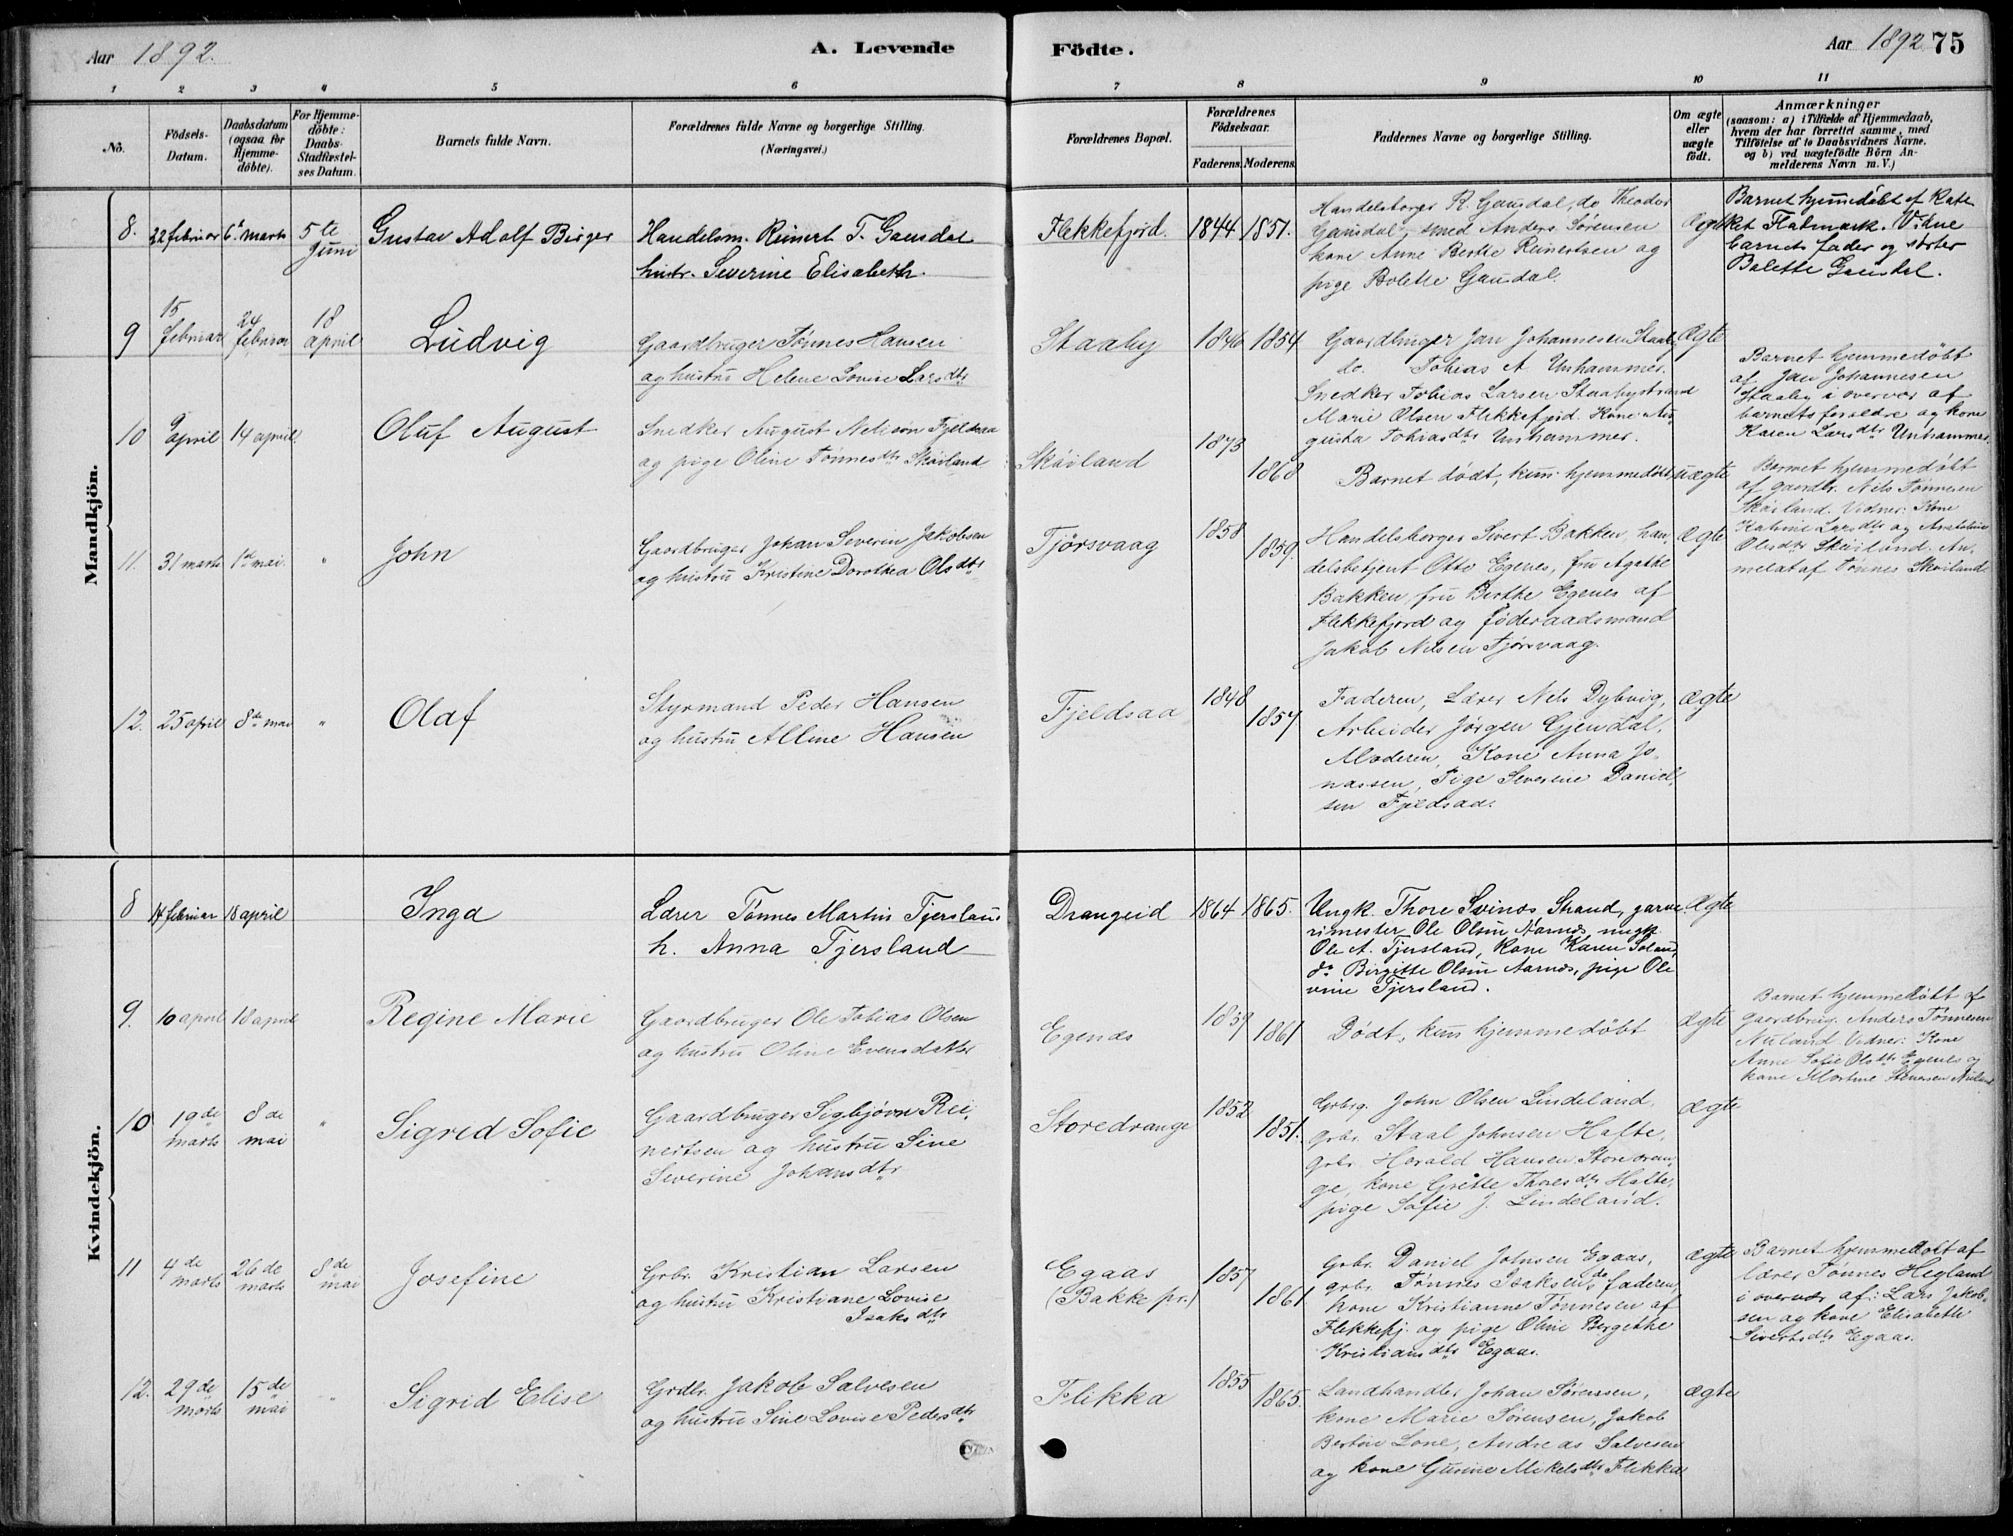 Aar 1892.
A. Levende Födte.
Aar 1892 75
1 2 3 4 5 6 7 8 9 10 11
No.
Födsels-Datum.
Daabsdatum (ogsaa for Hjemmedöbte).
For Hjemmedöbte: Daabs-Stadfæstelses Datum.
Barnets fulde Navn.
Forældrenes fulde Navne og borgerlige Stilling. (Næringsvei.)
Forældrenes Bopæl.
Forældrenes Födselsaar.
Faderens. Moderens.
Faddernes Navne og borgerlige Stilling.
Om ægte eller uægte födt.
Anmærkninger
(saasom: a) i Tilfælde af Hjemmedaab,
hvem der har forrettet samme, med
Tilföielse af to Daabsvidners Navne.
og b) ved uægtefödte Börn An-
melderens Navn m. V.)
Mandkjön.
8. 22 februar 6te marts 5te Juni
Gustav Adolf Birger
Handelsm. Reinert T. Gausdal
hustr. Severine Elisabeth.
Flekkefjord. 1844 1851.
Handelsborger R. Gausdal, do Theodor
Gausdal, smed Anders Sørensen
kone Anne Berthe Reinertsen og
pige Bolette Gausdal.
Ægte
Barnet hjemmedøbt af Kate
ket Flatmark. Vidne
barnets fader og søster
Bolette Gausdal.
9 15 februar 24 februar 18 april
Ludvig
Gaardbruger Tønnes Hansen
og hustru Helene Lovise Larsdtr
Staaby 1846 1854
Gaardbruger Jan Johannesen Staab.
do. Tobias A. Unhammer.
Snedker Tobias Larsen Staabystrand
Marie Olsen Flekkefjrd. Kone Au-
gusta Tobiasdtr Unhammer.
Ægte
Barnet hjemmedøbt
af Jan Johannesen
Staaby i overvær af
barnets forældre og kone
Karen Larsdtr Unhammer.
10 9 april 14 april
Oluf August
Snedker August Nelison Fjeldsaa
og pige Oline Tønnesdtr Skøiland
Skøiland 1873 1868
Barnet dødt, kun hjemmedøbt
uægte
Barnet hjemmedøbt
af gaardbr. Nils Tønnesen
Skøiland. Vidner: Kone
Katrine Larsdtr og
Olsdtr Skøiland. An-
meldt af Tønnes Skøiland.
11. 31 marts 1ste mai. "
John
Gaardbruger Johan Severin Jakobsen
og hustru Kristine Dorothea Olsdtr
Tjørsvaag 1858 1859.
Handelsborger Sivert Bakken, han-
delsbetjent Otto Egenes, fru Agathe
Bakken, fru Berthe Egenes af
Flekkefjord og føderaadsmand
Jakob Nilsen Tjørsvaag.
Ægte
12. 25 april 8de mai "
Olaf
Styrmand Peder Hansen
og hustru Alline Hansen
Fjeldsaa 1848 1857
Faderen, Lærer Nels Dybvig,
Arbeider Jørgen Gjendal,
Moderen, Kone Anna Jo-
nassen, Pige Severine Daniel-
sen Fjeldsaa.
Ægte
Kvindekjön.
8 14 februar 18 april
Inga
Lærer Tønnes Martin Tjersland
h. Anna Tjersland
Drangeid 1864 1865.
Ungk. Thore Svinøs Strand, garve-
rimester Ole Olsen Aarnæs, ungk
Ole A. Tjersland, kone Karen Soland
do Birgitte Olsen Aarnæs, pige Ole
vine Tjersland.
Ægte
9. 10 april 18 april
Regine Marie
Gaardbruger Ole Tobias Olsen
og hustru Oline Evensdatter
Egenæs 1859 1861
Dødt, kun hjemmedøbt
Ægte
Barnet hjemmedøbt af
gaardbrug. Anders Tønnesen
Nuland. Vidner: Kone
Anne Sofie Olsdtr Egenes og
kone Martine Nuland
10 19de marts 8de mai "
Sigrid Sofie
Gaardbruger Sigbjørn Rei-
nertsen og hustru Sine
Severine Johansdtr
Storedrange 1852 1851.
Grbrg. John Olsen Lindeland,
grbr. Staal Johnsen Hafte,
grbr. Harald Hansen Storedran-
ge, kone Gritte Thoresdtr Hafte,
pige Sofie J. Lindeland.
Ægte
11 4de marts 26de marts 8de mai
Josefine
Grbr. Kristian Larsen
og hustru Kristiane Lovise
Isaksdtr
Egaas (Bakke pr.) 1857 1861
Grbr. Daniel Johnsen Egaas,
grbr. Tønnes Isaksen do, faderen,
kone Kristianne Tønnesen af
Flekkefj. og pige Oline Bergethe
Kristiansdtr Egaas.
Ægte
Barnet hjemmedøbt af
lærer Tønnes Hegland
i overvær af: Lars Jakob-
sen og kone Elisabeth
Sivertsdtr Egaas.
12. 29de marts 15de mai "
Sigrid Elise
Grdbr. Jakob Salvesen
og hustru Sine Lovise Pedersdtr
Flikka 1855 1865.
Landhandler Johan Sørensen,
kone Marie Sørensen, Jakob
Bertin Lone, Andreas Salvesen
og kone Gusine Mikelsdtr Flikka
Ægte